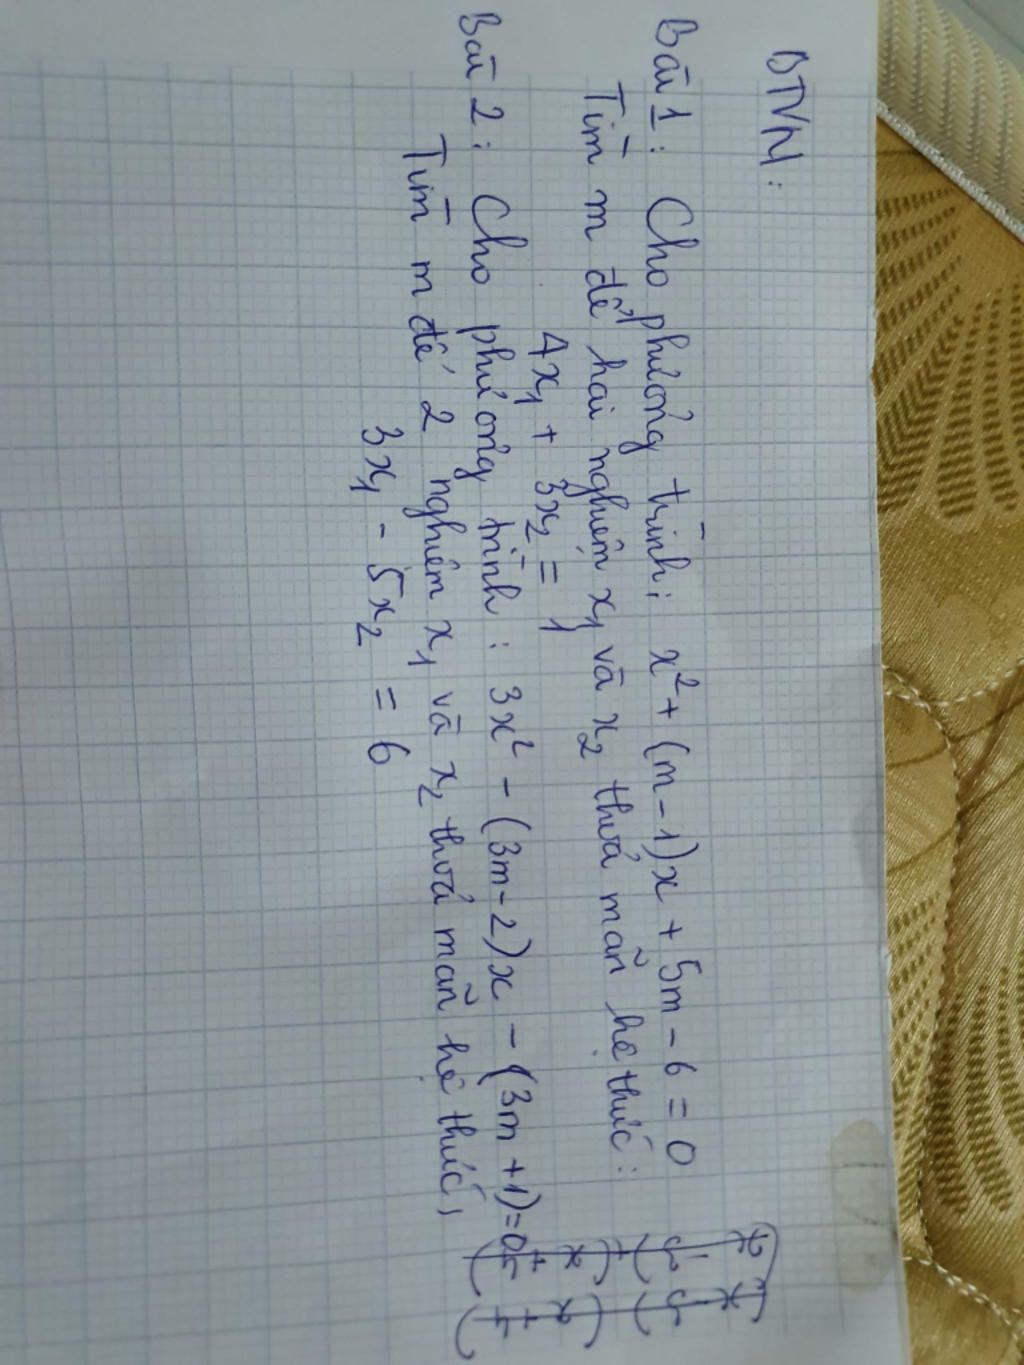 BTVN:
Bài 1: Cho phương trình: x² + (m - 1)x + 5m - 6 = 0
Tìm m để hai nghiệm x₁ và x₂ thoả mãn hệ thức:
4x₁ + 3x₂ = 1
Bài 2: Cho phương trình: 3x² - (3m - 2)x - (3m + 1) = 0
Tìm m để 2 nghiệm x₁ và x₂ thoả mãn hệ thức,
3x₁ - 5x₂ = 6